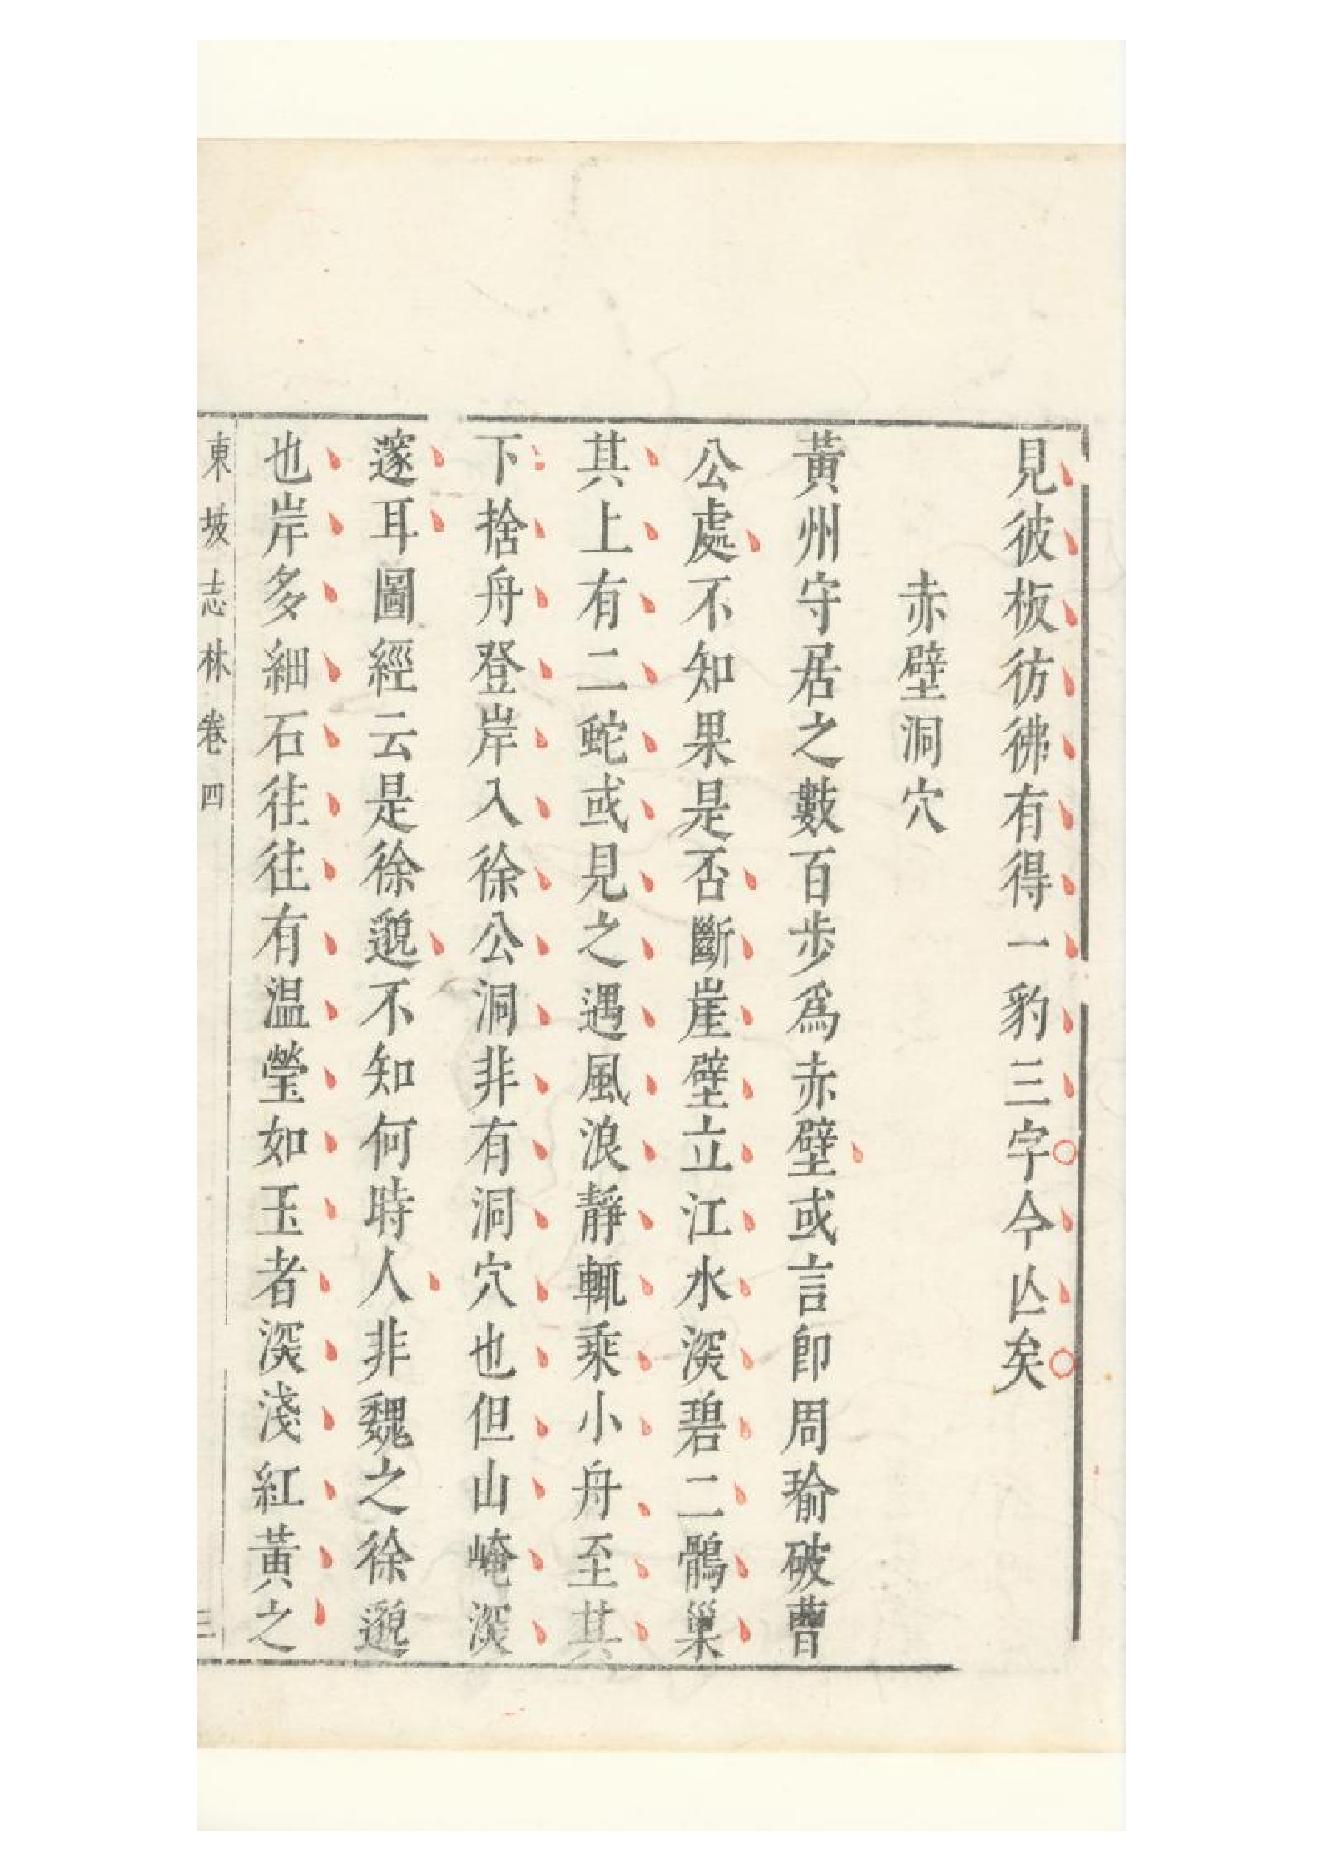 見彼板彷彿有得一豹三字今亾矣
赤壁洞穴
黃州守居之數百步爲赤壁或言卽周瑜破曹
公處不知果是否斷崖壁立江水深碧二鶻巢
其上有二蛇或見之遇風浪靜輒乘小舟至其
下捨舟登岸入徐公洞非有洞穴也但山崦深
邃耳圖經云是徐邈不知何時人非魏之徐邈
也岸多細石徃徃有温瑩如玉者深淺紅黃之
東坡志林 卷四 三